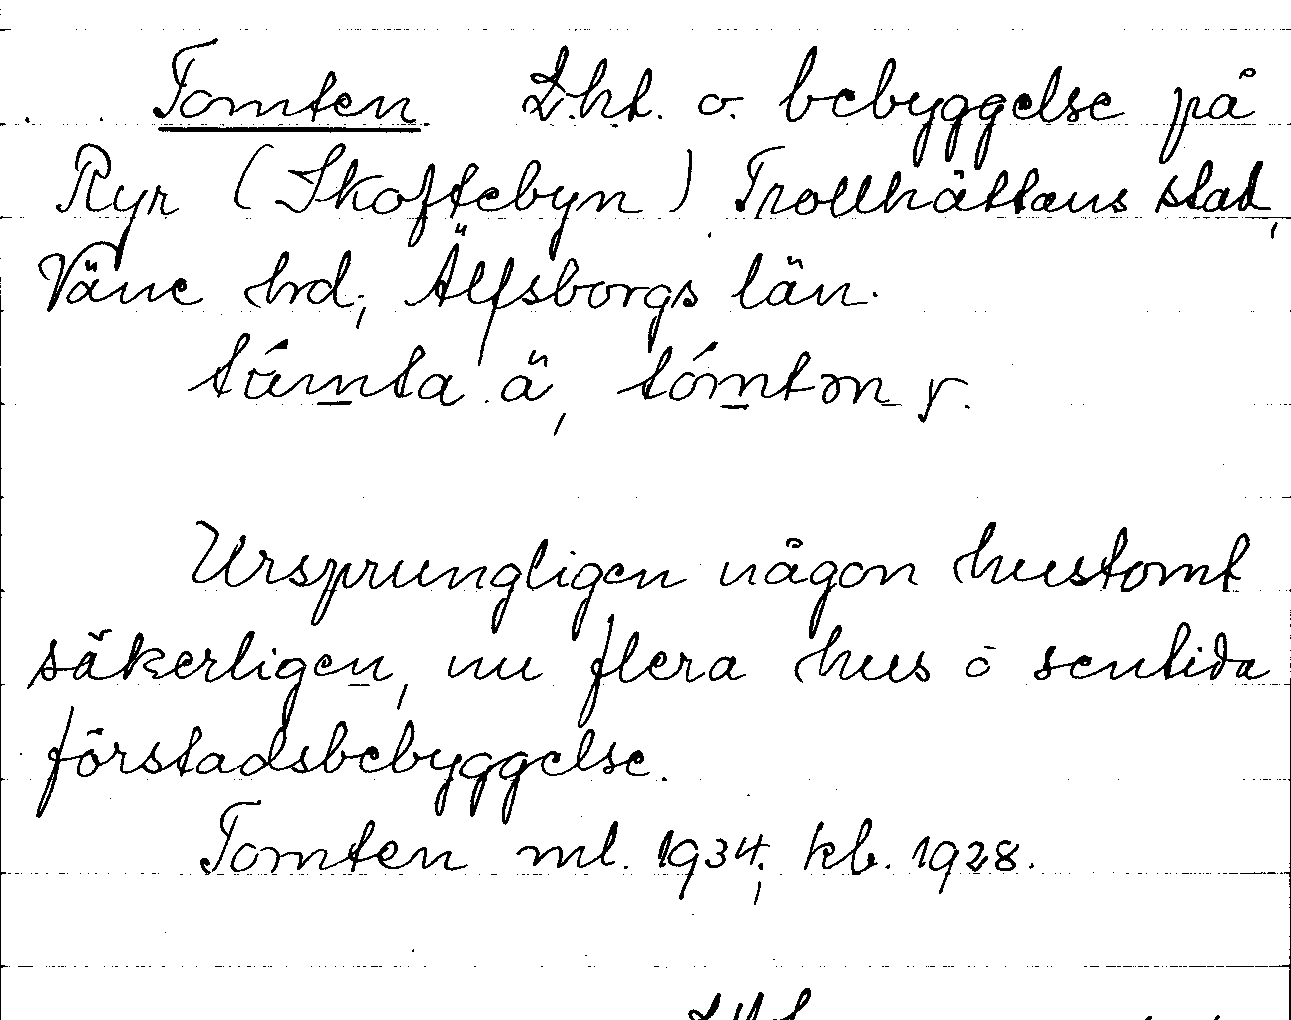 Tomten Lht. o. bebyggelse på
Ryr (Skoftebyn) Trollhättans stad,
Väne hrd; Älfsborgs län.
támta ä, tómtən y.
Ursprungligen någon hustomt
säkerligen, nu flera hus o sentida
förstadsbebyggelse.
Tomten ml. 1934; kb. 1928.